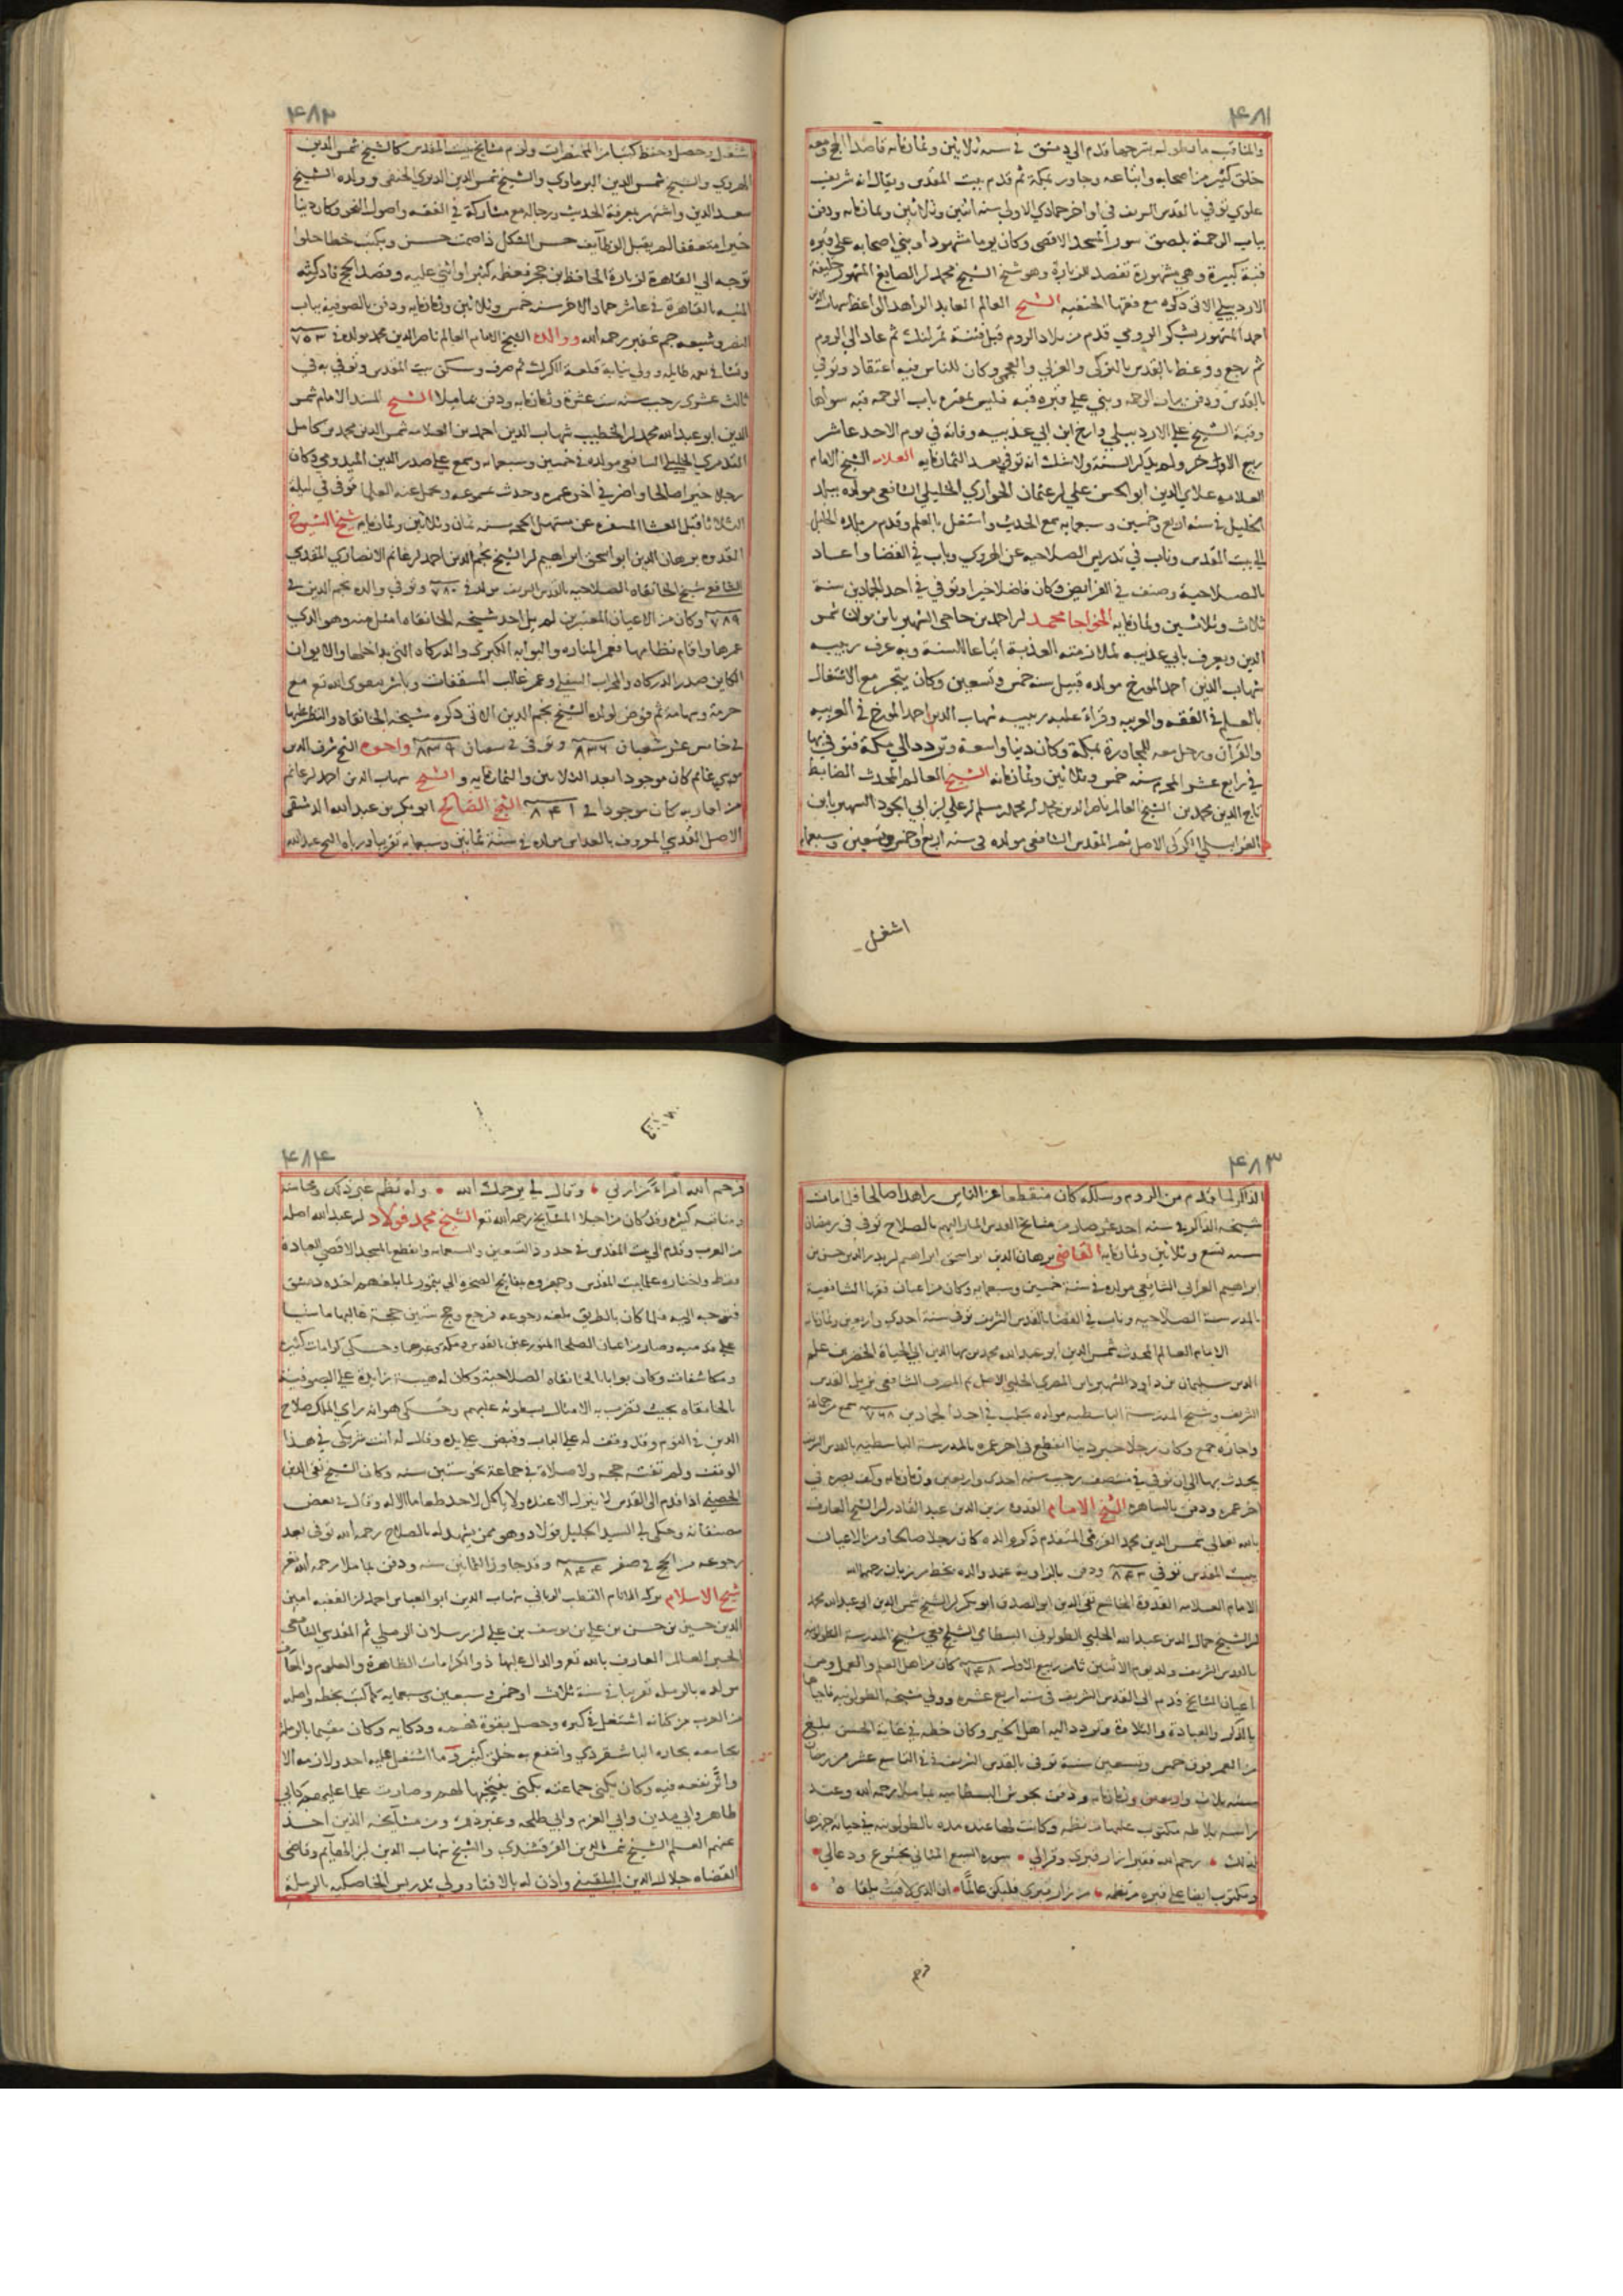 ٤٨١
والمناقب ما يطول به ترجمتها قدم الى دمشق في سنة ثلاثين وثمانمايه قاصدا الحج ومعه
خلق كثير من اصحابه واتباعه وجاور بمكة ثم قدم بيت المقدس ويقال انه شريف
علوي توفي بالقدس الشريف في اواخر جمادي الاولى سنة اثنين وثلاثين وثمانمايه ودفن
بباب الرحمة بلصق سور المسجد الاقصى وكان يوما مشهودا وبني اصحابه على قبره
قبة كبيرة وهي مشهورة تقصد للزيارة وهو شيخ الشيخ محمد بن الصايغ المشهور خليفة
الاردبيلي الاتي ذكره مع فقها الحنفيه الشيخ العالم العابد الزاهد الواعظ شهاب الدين
احمد المشهور بشكر الرومي قدم من بلاد الروم قبل فتنة تمرلنك ثم عاد الى الروم
ثم رجع ووعظ بالقدس بالتركي والعربي والعجمي وكان للناس فيه اعتقاد وتوفي
بالقدس ودفن بباب الرحمه وبني على قبره قبه فليس بمقبرة باب الرحمه قبه سواها
وقبة الشيخ علي الاردبيلي وارخ ابن ابي عذيبه وفاته في يوم الاحد عاشر
ربيع الاول ولم يذكر السنة ولا شك انه توفي بعد الثمانمايه العلامه الشيخ الامام
العلامه علاي الدين ابو الحسن علي بن عثمان الحواري الخليلي الشافعي مولده ببلد
الخليل في سنة اربع وخمسين وسبعمايه سمع الحديث واشتغل بالعلم وقدم من بلده الخليل
الي بيت المقدس وناب في تدريس الصلاحيه عن الهروي وناب في القضا واعاد
بالصلاحية وصنف في الفرائض وكان فاضلا خيرا وتوفي في احد الجمادين سنة
ثلاث وثلاثين وثمانمايه الخواجا محمد بن احمد بن حاجي الشهير بابن
الدين ويعرف بابي عذيبه لملازمته العذبة اتباعا للسنة وبه عرف ربيبه
شهاب الدين احمد المورخ مولده قبيل سنة خمس وتسعين وكان يتجر مع الاشتغال
بالعلم في الفقه والعربيه وقراة عليه ربيبه شهاب الدين احمد المورخ في العربيه
والقرآن ورحل معه للمجاورة بمكة وكان دنيا واسعة وتردد الي مكة فتوفي بها
في رابع عشر المحرم سنة خمس وثلاثين وثمانمايه الشيخ العالم المحدث الضابط
تاج الدين محمد بن الشيخ العالم ناصر الدين محمد بن محمد بن مسلم بن علي بن ابي الجود الشهير بابن
الغرابيلي الكركي الاصل ثم المقدسي الشافعي مولده في سنة اربع وخمس وتسعين وسبعمايه
اشغل
٤٨٢
اشتغل وحصل وحفظ كتبا من المختصرات ولازم مشايخ بيت المقدس كالشيخ شمس الدين
الهروي والشيخ شمس الدين البرماوي والشيخ شمس الدين الديري الحنفي وولده الشيخ
سعد الدين واشتهر بمعرفة الحديث ورجاله مع مشاركة في الفقه واصول النحو وكان دينا
خيرا متعففا لم يقبل الوظايف حسن الشكل ذا صمت حسن ويكتب خطا حلوا
توجه الي القاهرة لزيارة الحافظ بن حجر فعظمه كثيرا واثني عليه وقصد الحج فادركته
المنيه بالقاهرة في عاشر جماد الاخر سنه خمس وثلاثين وثمانمايه ودفن بالصوفيه بباب
النصر وشيعه جم غفير رحمه الله ووالده الشيخ الامام العالم ناصر الدين محمد مولده في ٧٥٣
ونشا في نعمه طايله وولي نيابة قلعة الكرك ثم صرف وسكن بيت المقدس وتوفي به في
ثالث عشري رجب سنه ست عشرة وثمانمايه ودفن بماملا الشيخ المسند الامام شمس
الدين ابو عبد الله محمد بن الخطيب شهاب الدين احمد بن العلامه شمس الدين محمد بن كامل
التدمري الخليلي الشافعي مولده في خمسين وسبعمايه وسمع علي صدر الدين الميدومي وكان
رجلا خيرا صالحا واضر في اخر عمره وحدث بمسموعه وحمل عنه العلما توفي في ليلة
الثلاثا قبل العشا المسفره عن مستهل الحجه سنه ثمان وثلاثين وثمانمايه شيخ الشيوخ
القدوه برهان الدين ابو اسحق ابراهيم بن الشيخ نجم الدين احمد بن غانم الانصاري المقدسي
الشافعي شيخ الخانقاه الصلاحيه بالقدس الشريف مولده في ٧٨٠ وتوفي والده نجم الدين في
٧٨٩ وكان من الاعيان المعتبرين لم يل احد مشيخة الخانقاه امثل منه وهو الذي
عمرها واقام نظامها فعمر المناره والبوابه الكبرى والدركاه التي بداخلها والايوان
الكاين صدر الدركاه والمحراب السفلي وعمر غالب المسقفات وباشر بتقوى الله تع مع
حرمة وشهامة ثم فوض لولده الشيخ نجم الدين الاتي ذكره مشيخة الخانقاه والنظر عليها
في خامس عشر شعبان ٨٣٦ وتوفي في شعبان ٨٣٩ واخوه الشيخ شرف الدين
موسى بن غانم كان موجودا بعد الثلاثين والثمانمايه والشيخ شهاب الدين احمد بن غانم
من اقاربه كان موجودا في ٨٤١ الشيخ الصالح ابو بكر بن عبد الله الدمشقي
الاصل المقدسي المعروف بالعداس مولده في سنة ثمانين وسبعمايه تقريبا ورباه الشيخ عبد الله
٤٨٣
الذاكر لما قدم من الروم وسلكه كان منقطعا عن الناس زاهدا صالحا فلما مات
شيخه الذاكر في سنه احد عشر صار من مشايخ القدس المشار اليهم بالصلاح توفي في رمضان
سنه تسع وثلاثين وثمانمايه القاضي برهان الدين ابو اسحق ابراهيم بن بدر الدين حسن بن
ابراهيم العرابي الشافعي مولده في سنة خمسين وسبعمايه وكان من اعيان فقها الشافعية
بالمدرسة الصلاحيه وناب في القضا بالقدس الشريف توفي سنة احدي واربعين وثمانمايه
الامام العالم المحدث شمس الدين ابو عبد الله محمد بن بها الدين ابي الحياة الخضر بن علم
الدين سليمان بن داود الشهير بابن المصري الحلبي الاصل ثم المصري الشافعي نزيل القدس
الشريف وشيخ المدرسة الباسطيه مولده بحلب في احد الجمادين ٧٦٨ سمع من جماعة
واجازه جمع وكان رجلا خيرا دينا انقطع في اخر عمره بالمدرسة الباسطيه بالقدس الشريف
يحدث بها الي ان توفي في منتصف رجب سنه احدي واربعين وثمانمايه وكف بصره في
اخر عمره ودفن بالساهره الشيخ الامام القدوه زين الدين عبد القادر بن الشيخ العارف
بالله تعالي شمس الدين محمد القرمي المتقدم ذكره والده كان رجلا صالحا ومن الاعيان
ببيت المقدس توفي ٨٤٣ ودفن بالزاوية عند والده بخط مرزبان رحمه الله
الامام العلامه القدوة الخاشع تقي الدين ابو الصدق ابو بكر بن الشيخ شمس الدين ابي عبد الله محمد
بن الشيخ جمال الدين عبد الله الحلبي الطولوني البسطامي الشافعي شيخ المدرسة الطولونيه
بالقدس الشريف ولد يوم الاثنين ثامن ربيع الاول ٧٤٨ كان من اهل العلم والعمل ومن
اعيان المشايخ قدم الى القدس الشريف في سنه اربع عشره وولي مشيخه الطولونيه
بالذكر والعبادة والتلاوة وتردد اليه اهل الخير وكان خطه في غاية الحسن بلغ
من العمر فوق خمس وتسعين سنة توفي بالقدس الشريف في التاسع عشر من رمضان
سنه ثلاث واربعين وثمانمايه ودفن بحوش البسطاميه بماملا رحمه الله وعند
راسه بلاطه مكتوب عليها من نظمه وكانت لها عنده مده بالطولونيه في حياته جهزها
لذلك رحم الله فقيرا زار قبري وقرا لي سوره السبع المثاني بخشوع ودعا لي
ومكتوب ايضا على قبره من نظمه من زار قبري فليكن عالما ان الذي لاقيت يلقاه
فرحم
٤٨٤
فرحم الله امراء زارني وقال لي يرحمك الله وله نظم غير ذلك ومحاسنه
ومناقبه كثيره وقد كان من اجلا المشايخ رحمه الله تع الشيخ محمد فولاد بن عبد الله اصله
من العرب وقدم الي بيت المقدس في حدود التسعين والسبعمايه وانقطع بالمسجد الاقصي للعبادة
فقط واختاره علما بيت المقدس وجهزوه بمفاتيح الصخره الي تيمور لما بلغهم اخذه دمشق
فتوجه اليه فلما كان بالطريق بلغه رجوعه فرجع وحج ستين حجة غالبها ماشيا
علي قدميه وصار من اعيان الصلحا المتورعين بالقدس ومكه وغيرها وحكى كرامات كثيره
ومكاشفات وكان بوابا بالخانقاه الصلاحية وكان له هيبة زايدة علي الصوفية
بالخانقاه بحيث تضرب به الامثال بسطوته عليهم وحكى هو انه راي الملك صلاح
الدين في النوم وقد وقف له علي الباب وقبض علي يده وقال له انت شريكي في هذا
الوقف ولم تفته حجه ولا صلاة في جماعة نحو ستين سنه وكان الشيخ تقي الدين
الحصني اذا قدم الي القدس لا ينزل الا عنده ولا ياكل لاحد طعاما الا له وقال في بعض
مصنفاته وحكى لي السيد الجليل فولاد وهو ممن يشهد له بالصلاح رحمه الله توفي بعد
رجوعه من الحج في صفر ٨٤٤ وقد جاوز الثمانين سنه ودفن بماملا رحمه الله تع
شيخ الاسلام بركه الانام القطب الرباني شهاب الدين ابو العباس احمد بن الفقيه امين
الدين حسين بن حسن بن علي بن يوسف بن علي بن رسلان الرملي ثم المقدسي الشافعي
الحبر العالم العارف بالله تع والدال عليها ذو الكرامات الظاهرة والعلوم والمعارف
مولده بالرمله تقريبا في سنة ثلاث او خمس وسبعين وسبعمايه كما كتب بخطه واصله
من العرب من كنانه اشتغل في كبره وحصل بقوة فهمه وذكايه وكان مقيما بالرمله
بجامعه بحارة الباشقردي وانتفع به خلق كثير وما اشتغل عليه احد ولازمه الا
واثر نفعه فيه وكان يكني جماعته بكنى ينتخبها لهم وصارت علما عليهم كابي
طاهر وابي مدين وابي العزم وابي طلحه وغير ذلك ومن مشايخه الذين اخذ
عنهم العلم الشيخ شمس الدين القرقشندي والشيخ شهاب الدين بن الهايم وقاضي
القضاه جلال الدين البلقيني واذن له بالافتا وولي تدريس الخاصكيه بالرملة